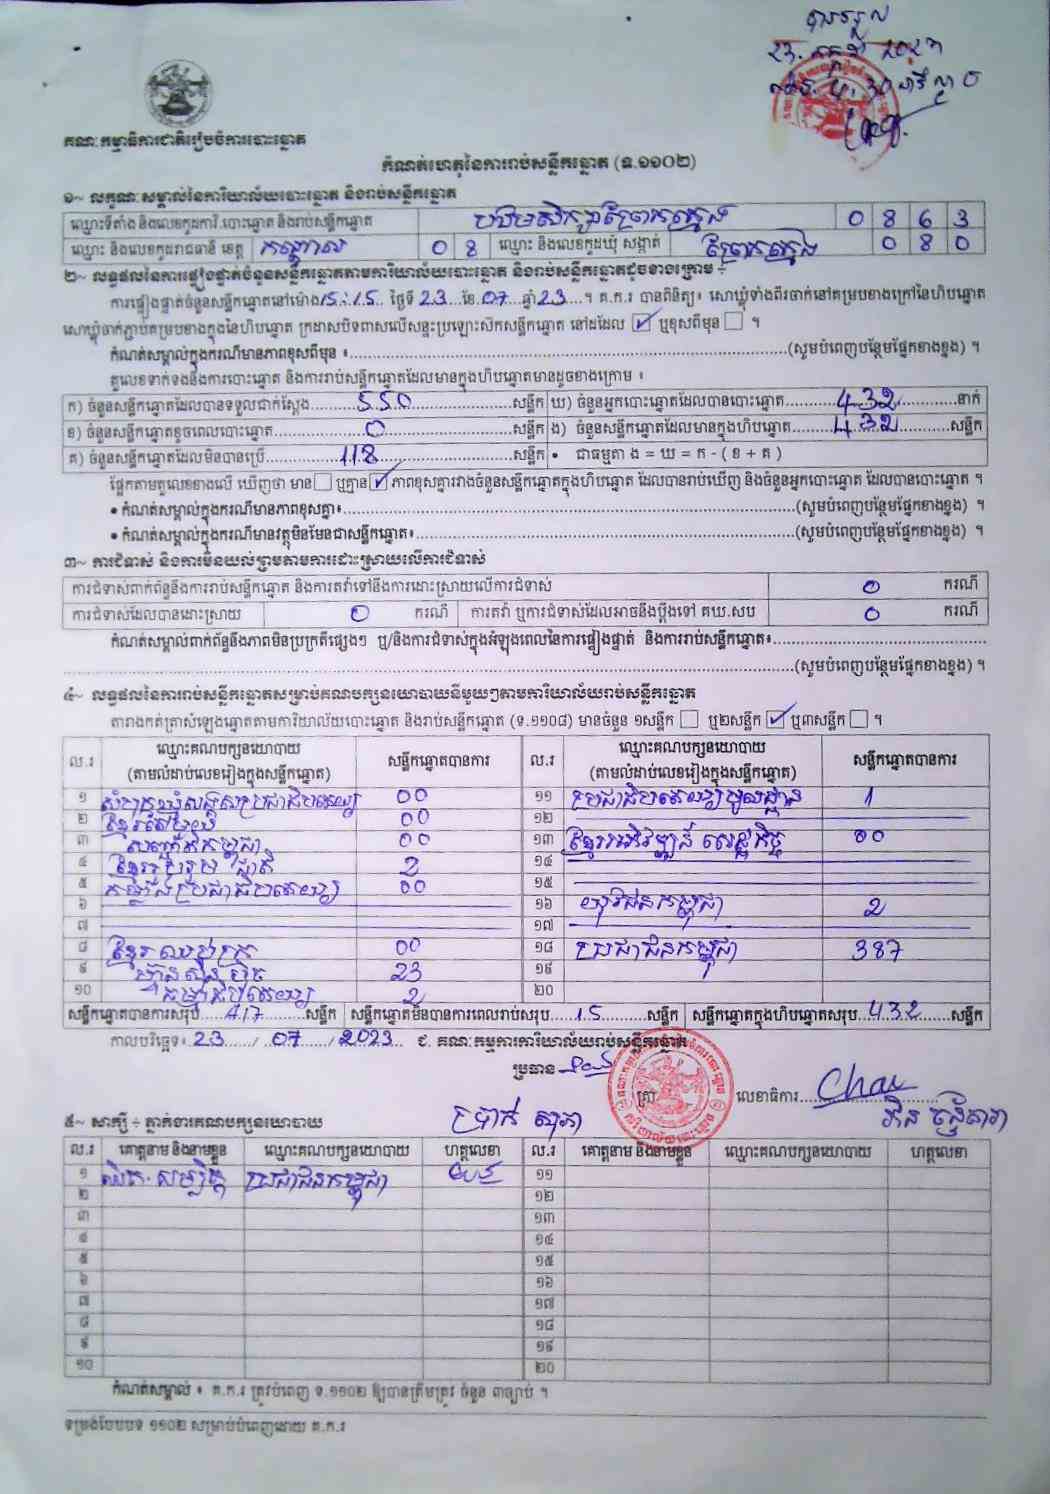 បានទទួល
គណៈកម្មាធិការជាតិរៀបចំការបោះឆ្នោត
កំណត់ហេតុនៃការរាប់សន្លឹកឆ្នោត (ទ.១១០២)
១~ លក្ខណៈសម្គាល់នៃការិយាល័យបោះឆ្នោត និងរាប់សន្លឹកឆ្នោត
ឈ្មោះទីតាំង និងលេខកូដការិ.បោះឆ្នោត និងរាប់សន្លឹកឆ្នោត បឋមសិក្សាព្រែកក្មេង 0 8 6 3
ឈ្មោះ និងលេខកូដរាជធានី ខេត្ត កណ្តាល 0 8 ឈ្មោះ និងលេខកូដឃុំ សង្កាត់ ព្រែកក្មេង 0 8 0
២~ លទ្ធផលនៃការផ្ទៀងផ្ទាត់ចំនួនសន្លឹកឆ្នោតតាមការិយាល័យបោះឆ្នោត និងរាប់សន្លឹកឆ្នោតដូចខាងក្រោម ÷
ការផ្ទៀងផ្ទាត់ចំនួនសន្លឹកឆ្នោតនៅម៉ោង 15:15 ថ្ងៃទី 23 ខែ 07 ឆ្នាំ 23 ។ គ.ក.រ បានពិនិត្យ៖ សោឃ្លុំទាំងពីរចាក់នៅគម្របខាងក្រៅនៃហិបឆ្នោត
សោឃ្លុំចាក់ភ្ជាប់គម្របខាងក្នុងនៃហិបឆ្នោត ក្រដាសបិទពាសលើសន្ទះប្រឡោះសិកសន្លឹកឆ្នោត នៅដដែល ☑ ឬខុសពីមុន ☐ ។
កំណត់សម្គាល់ក្នុងករណីមានភាពខុសពីមុន ៖ (សូមបំពេញបន្ថែមផ្នែកខាងខ្នង) ។
តួលេខទាក់ទងនឹងការបោះឆ្នោត និងការរាប់សន្លឹកឆ្នោតដែលមានក្នុងហិបឆ្នោតមានដូចខាងក្រោម ៖
ក) ចំនួនសន្លឹកឆ្នោតដែលបានទទួលជាក់ស្តែង 550 សន្លឹក ឃ) ចំនួនអ្នកបោះឆ្នោតដែលបានបោះឆ្នោត 432 នាក់
ខ) ចំនួនសន្លឹកឆ្នោតខូចពេលបោះឆ្នោត 0 សន្លឹក ង) ចំនួនសន្លឹកឆ្នោតដែលមានក្នុងហិបឆ្នោត 432 សន្លឹក
គ) ចំនួនសន្លឹកឆ្នោតដែលមិនបានប្រើ 118 សន្លឹក • ជាធម្មតា ង = ឃ = ក - ( ខ + គ )
ផ្អែកតាមតួលេខខាងលើ ឃើញថា មាន ☐ ឬគ្មាន ☑ ភាពខុសគ្នារវាងចំនួនសន្លឹកឆ្នោតក្នុងហិបឆ្នោត ដែលបានរាប់ឃើញ និងចំនួនអ្នកបោះឆ្នោត ដែលបានបោះឆ្នោត ។
• កំណត់សម្គាល់ក្នុងករណីមានភាពខុសគ្នា៖ (សូមបំពេញបន្ថែមផ្នែកខាងខ្នង) ។
• កំណត់សម្គាល់ក្នុងករណីមានវត្ថុមិនមែនជាសន្លឹកឆ្នោត៖ (សូមបំពេញបន្ថែមផ្នែកខាងខ្នង) ។
៣~ ការជំទាស់ និងការមិនយល់ព្រមតាមការដោះស្រាយលើការជំទាស់
ការជំទាស់ពាក់ព័ន្ធនឹងការរាប់សន្លឹកឆ្នោត និងការតវ៉ាទៅនឹងការដោះស្រាយលើការជំទាស់ 0 ករណី
ការជំទាស់ដែលបានដោះស្រាយ 0 ករណី ការតវ៉ា ឬការជំទាស់ដែលអាចនឹងប្តឹងទៅ គឃ.សប 0 ករណី
កំណត់សម្គាល់ពាក់ព័ន្ធនឹងភាពមិនប្រក្រតីផ្សេងៗ ឬ/និងការជំទាស់ក្នុងអំឡុងពេលនៃការផ្ទៀងផ្ទាត់ និងការរាប់សន្លឹកឆ្នោត៖
(សូមបំពេញបន្ថែមផ្នែកខាងខ្នង) ។
៤~ លទ្ធផលនៃការរាប់សន្លឹកឆ្នោតសម្រាប់គណបក្សនយោបាយនីមួយៗតាមការិយាល័យរាប់សន្លឹកឆ្នោត
តារាងកត់ត្រាសំឡេងឆ្នោតតាមការិយាល័យបោះឆ្នោត និងរាប់សន្លឹកឆ្នោត (ទ.១១០៨) មានចំនួន ១សន្លឹក ☐ ឬ២សន្លឹក ☑ ឬ៣សន្លឹក ☐ ។
ល.រ ឈ្មោះគណបក្សនយោបាយ (តាមលំដាប់លេខរៀងក្នុងសន្លឹកឆ្នោត) សន្លឹកឆ្នោតបានការ ល.រ ឈ្មោះគណបក្សនយោបាយ (តាមលំដាប់លេខរៀងក្នុងសន្លឹកឆ្នោត) សន្លឹកឆ្នោតបានការ
១ សំបុកឃ្មុំសង្គមប្រជាធិបតេយ្យ 00 ១១ ប្រជាធិបតេយ្យមូលដ្ឋាន 1
២ ខ្មែរតែមួយ 00 ១២
៣ កម្ពុជា 00 ១៣ ខ្មែរអភិវឌ្ឍន៍ សេដ្ឋកិច្ច 00
៤ ខ្មែររួបរួម ជាតិ 2 ១៤
៥ កម្លាំងប្រជាធិបតេយ្យ 00 ១៥
៦ ១៦ យុវជនកម្ពុជា 2
៧ ១៧
៨ ខ្មែរ 00 ១៨ ប្រជាជនកម្ពុជា 387
៩ ហ៊្វុនស៊ិនប៉ិច 23 ១៩
១០ ធម្មាធិបតេយ្យ 2 ២០
សន្លឹកឆ្នោតបានការសរុប 417 សន្លឹក សន្លឹកឆ្នោតមិនបានការពេលរាប់សរុប 15 សន្លឹក សន្លឹកឆ្នោតក្នុងហិបឆ្នោតសរុប 432 សន្លឹក
កាលបរិច្ឆេទ៖ 23 / 07 / 2023 ជ. គណៈកម្មការការិយាល័យរាប់សន្លឹកឆ្នោត
ប្រធាន ត្រា លេខាធិការ
ប្រាក់ សុភា
៥~ សាក្សី ÷ ភ្នាក់ងារគណបក្សនយោបាយ
ល.រ គោត្តនាម និងនាមខ្លួន ឈ្មោះគណបក្សនយោបាយ ហត្ថលេខា ល.រ គោត្តនាម និងនាមខ្លួន ឈ្មោះគណបក្សនយោបាយ ហត្ថលេខា
១ សម្បត្តិ ប្រជាជនកម្ពុជា ១១
២ ១២
៣ ១៣
៤ ១៤
៥ ១៥
៦ ១៦
៧ ១៧
៨ ១៨
៩ ១៩
១០ ២០
កំណត់សម្គាល់ ៖ គ.ក.រ ត្រូវបំពេញ ទ.១១០២ ឱ្យបានត្រឹមត្រូវ ចំនួន ៣ច្បាប់ ។
ទម្រង់បែបបទ ១១០២ សម្រាប់បំពេញដោយ គ.ក.រ